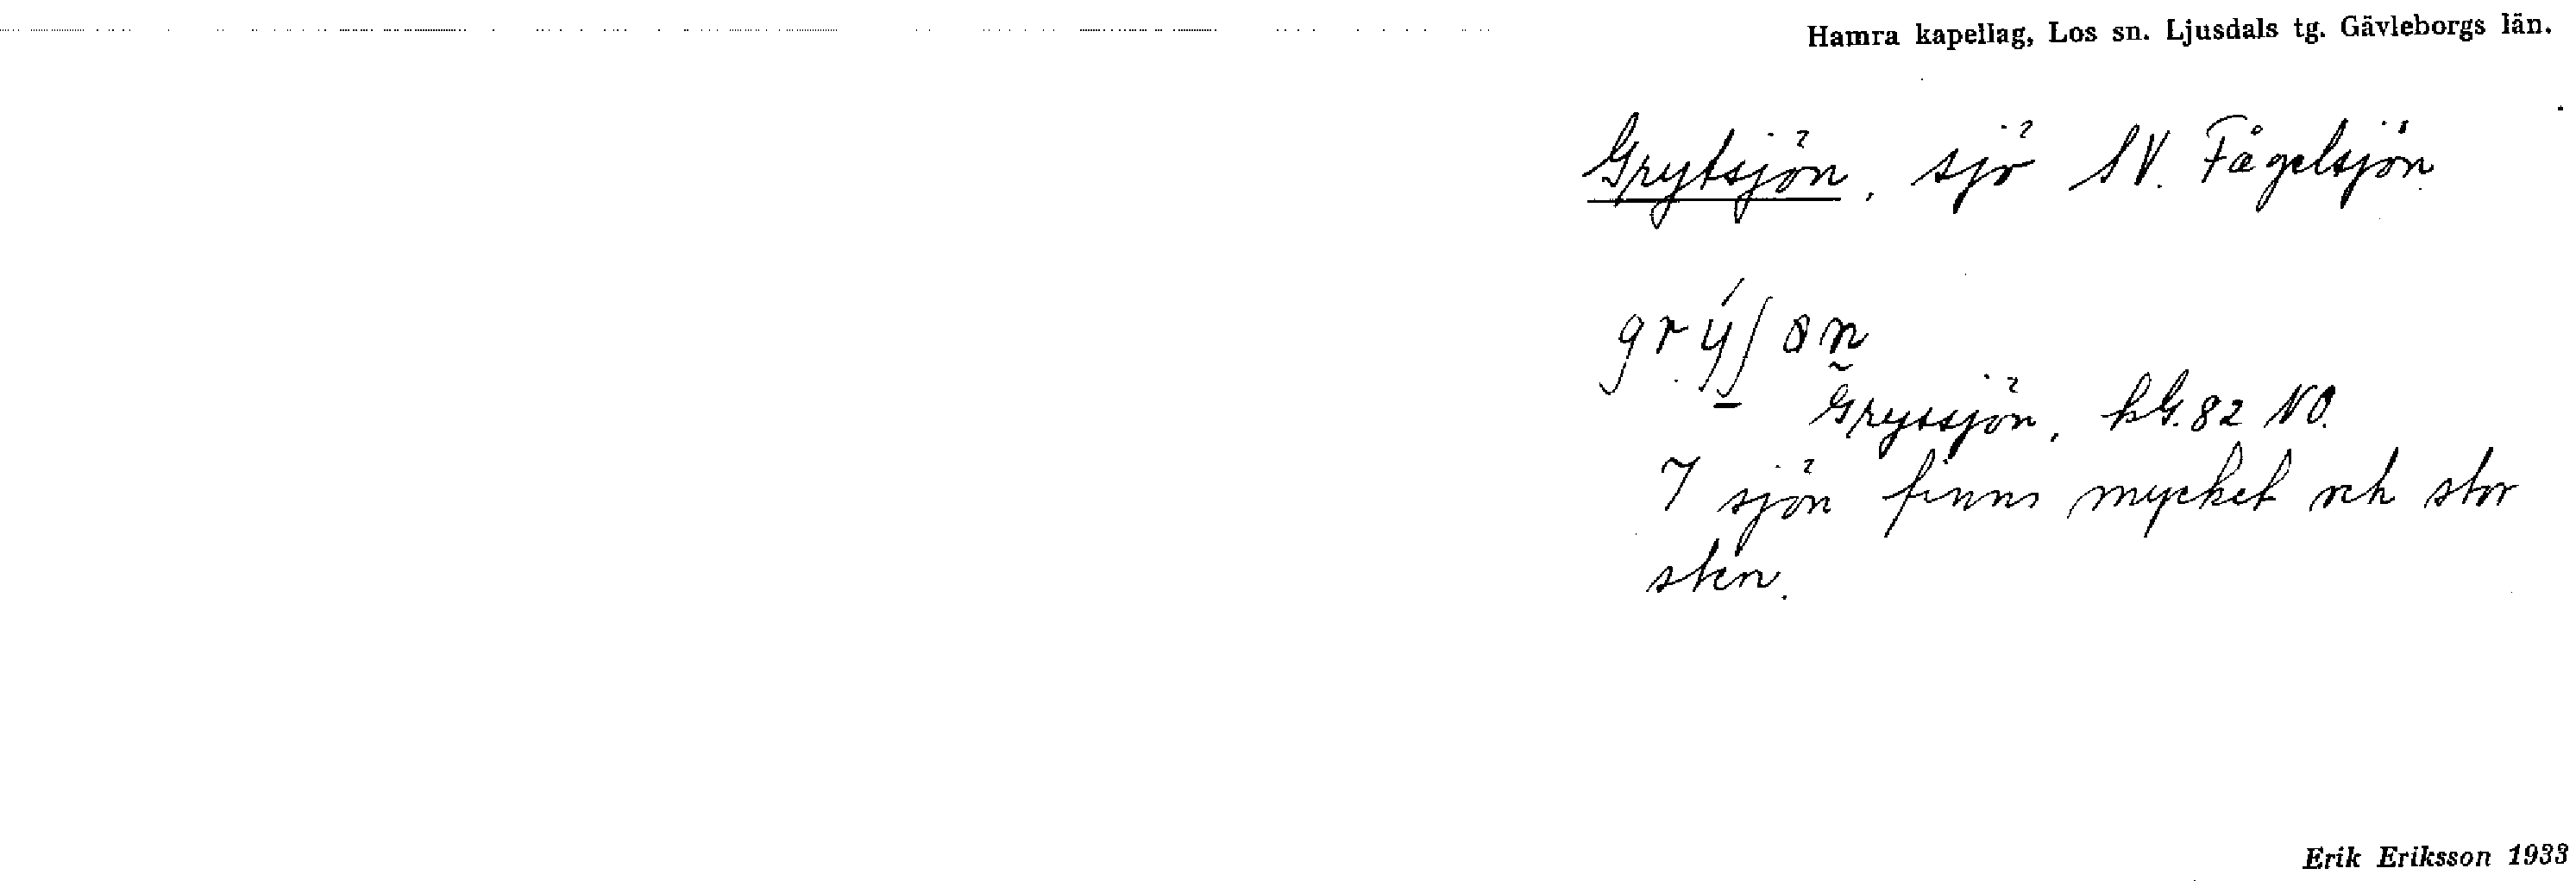 Hamra kapellag, Los sn. Ljusdals tg. Gävleborgs län.
Grytsjön, sjö SV. Fågelsjön
Gryssjön, kG. 82 NO.
I sjön finns mycket och stor
sten.
Erik Eriksson 1933